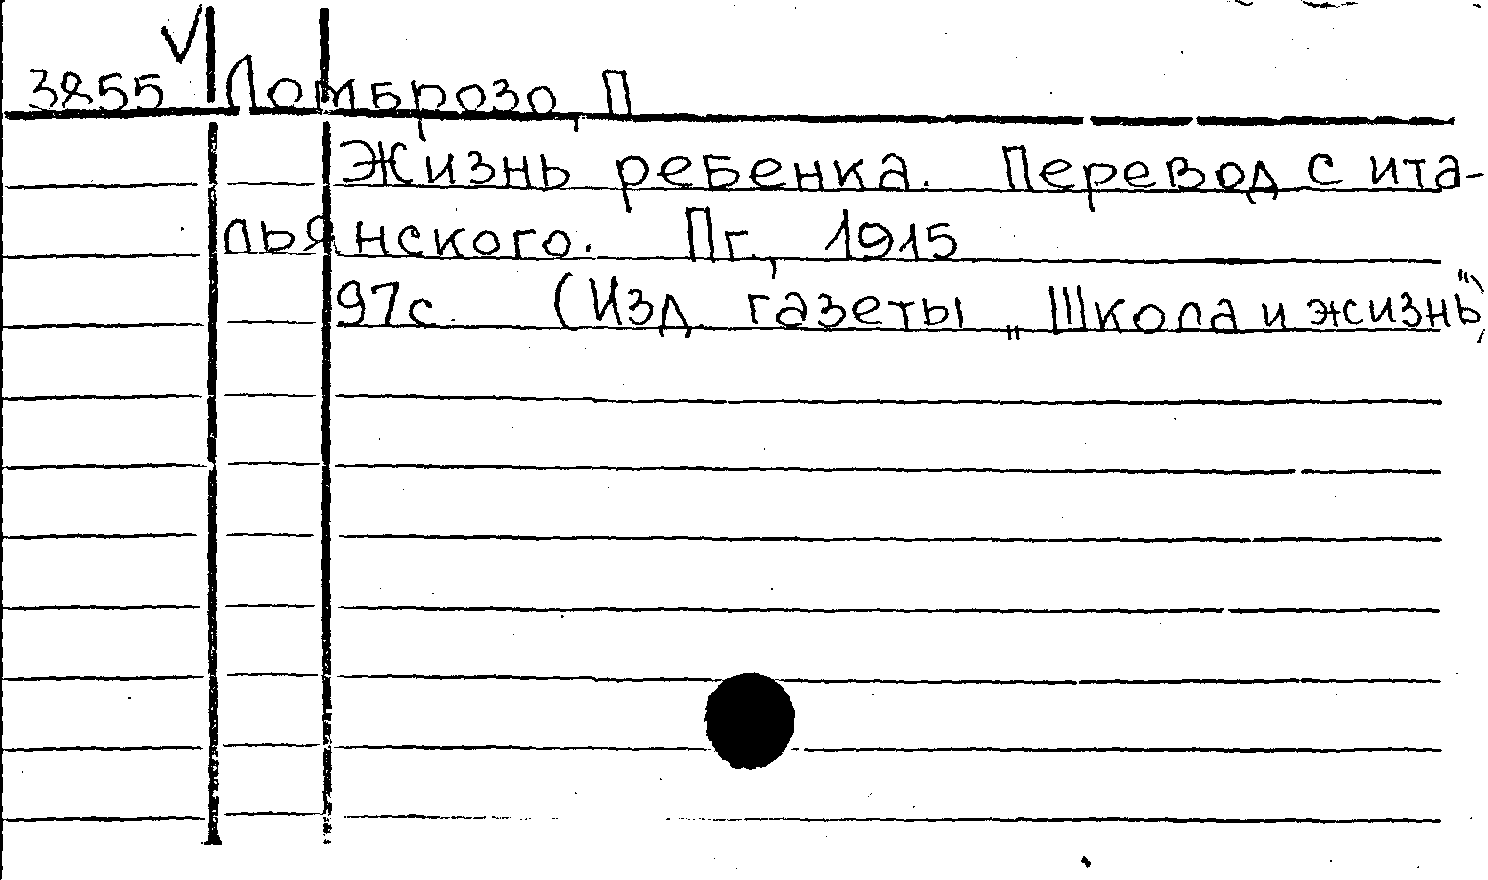 3855 Ломброзо, П
Жизнь ребенка. Перевод с ита-
льянского. Пг., 1915
97с. (Изд. газеты „Школа и жизнь")